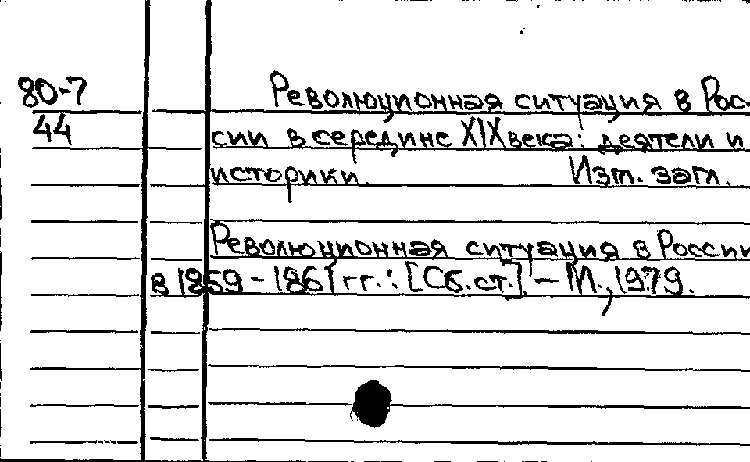 80-7
44
Революционная ситуация в Рос-
сии в середине XIX века: деятели и
историки. Изм. загл.
Революционная ситуация в России
в 1859-1861 гг.: [Сб.ст.] - М., 1979.